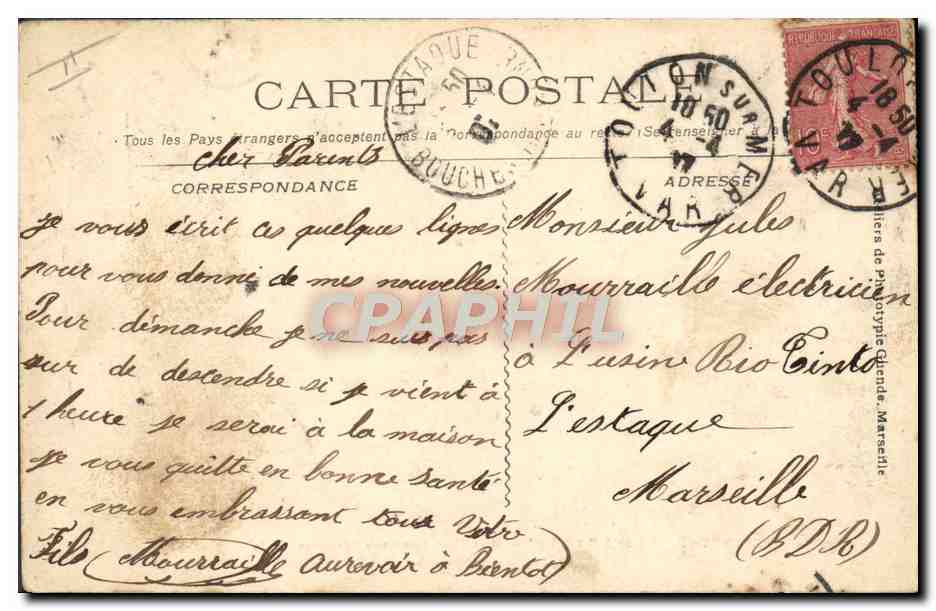 CARTE POSTALE
Tous les Pays étrangers n'acceptent pas la Correspondance au recto (Se renseigner à la
CORRESPONDANCE
cher Parents
je vous écrit ces quelques lignes
pour vous donné de mes nouvelles.
Pour démanche je ne suis pas
sur de descendre si je vient à
1 heure je serai à la maison
je vous quitte en bonne santé
en vous embrassant tous Votre
Fils (Mourraille Aurevoir à Bientot)
ADRESSE
Monsieur Jules
Mourraille électricien
à L'usine Rio Tinto
L'estaque
Marseille
(BDR)
L'ESTAQUE
BOUCHES
TOULON SUR MER
18 50
4 - 4
VAR
REPUBLIQUE FRANÇAISE
10c
TOULON
18 50
4 - 4
VAR
de Phototypie Guende. Marseille
CPAPHIL